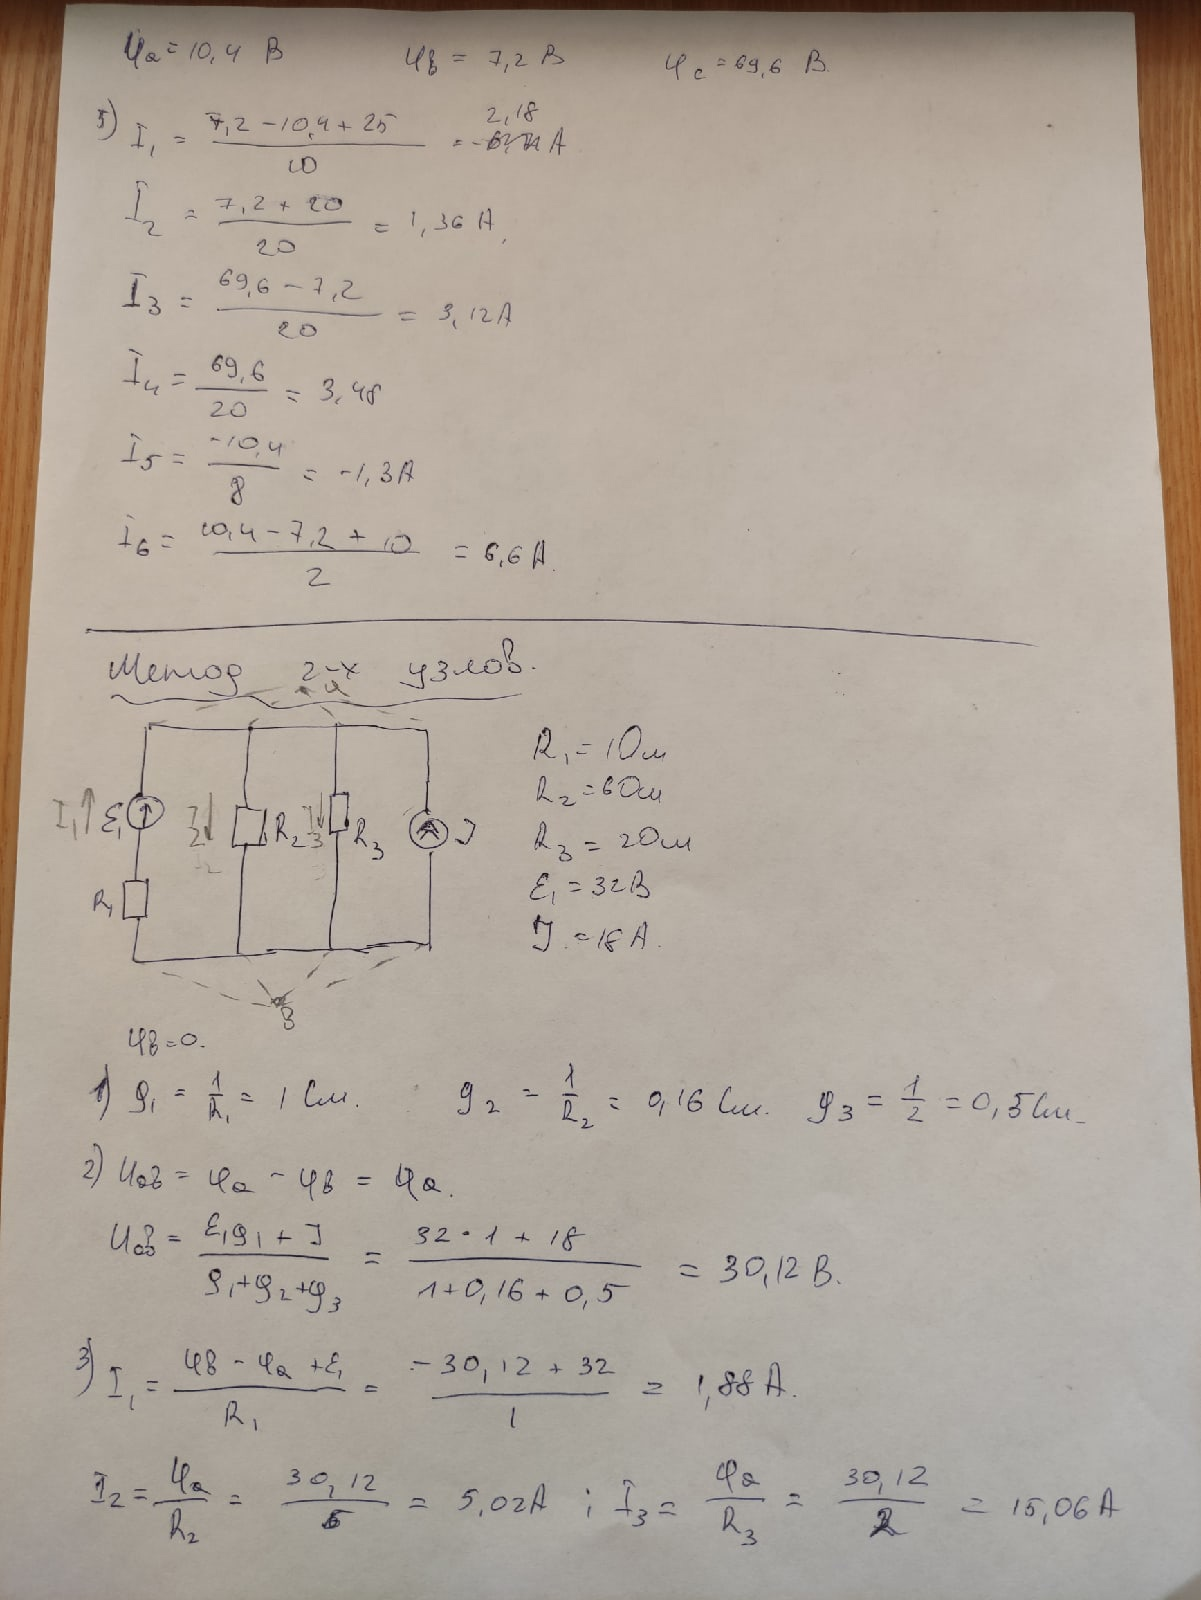 φa = 10,4 В φв = 7,2 В φc = 69,6 В
5) I₁ = (7,2 − 10,4 + 25)/10 = 2,18 А
I₂ = (7,2 + 20)/20 = 1,36 А,
I₃ = (69,6 − 7,2)/20 = 3,12 А
I₄ = 69,6/20 = 3,48
I₅ = −10,4/8 = −1,3 А
I₆ = (10,4 − 7,2 + 10)/2 = 6,6 А.
Метод 2-х узлов.
a
I₁ ε₁ I₂ R₂ I₃ R₃ J
R₁
в
R₁ = 1 Ом
R₂ = 6 Ом
R₃ = 2 Ом
ε₁ = 32 В
J = 18 А.
φв = 0.
1) g₁ = 1/R₁ = 1 См. g₂ = 1/R₂ = 0,16 См. g₃ = 1/2 = 0,5 См.
2) Uaв = φa − φв = φa.
Uaв = (ε₁g₁ + J)/(g₁+g₂+g₃) = (32·1 + 18)/(1+0,16+0,5) = 30,12 В.
3) I₁ = (φв − φa + ε₁)/R₁ = (−30,12 + 32)/1 = 1,88 А.
I₂ = φa/R₂ = 30,12/6 = 5,02 А ; I₃ = φa/R₃ = 30,12/2 = 15,06 А